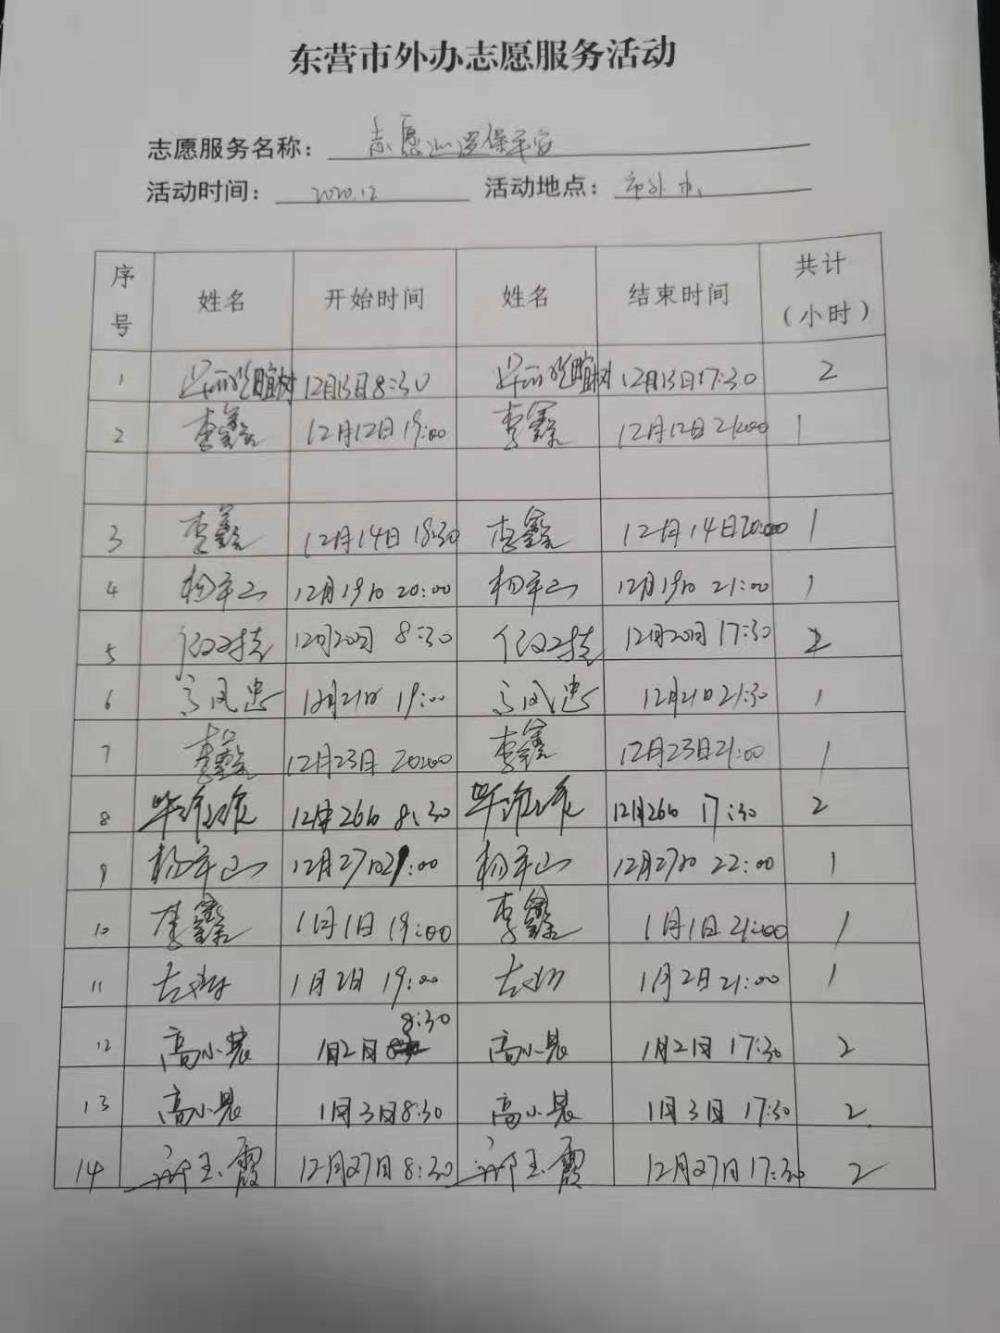 东营市外办志愿服务活动
志愿服务名称： 志愿巡逻保平安
活动时间： 2020.12 活动地点： 市外办
序号 姓名 开始时间 姓名 结束时间 共计（小时）
1 12月13日8:30 12月13日17:30 2
2 李鑫 12月12日19:00 李鑫 12月12日21:00 1
3 李鑫 12月14日18:30 李鑫 12月14日20:00 1
4 杨平山 12月19日 20:00 杨平山 12月19日 21:00 1
5 12月20日 8:30 12月20日17:30 2
6 12月21日 19:00 12月21日21:30 1
7 李鑫 12月23日 20:00 李鑫 12月23日21:00 1
8 12月26日 8:30 12月26日 17:30 2
9 杨平山 12月27日21:00 杨平山 12月27日 22:00 1
10 李鑫 1月1日 19:00 李鑫 1月1日 21:00 1
11 1月2日 19:00 1月2日21:00 1
12 高小 1月2日 8:30 高小 1月2日 17:30 2
13 高小 1月3日8:30 高小 1月3日 17:30 2
14 玉霞 12月27日 8:30 玉霞 12月27日17:30 2